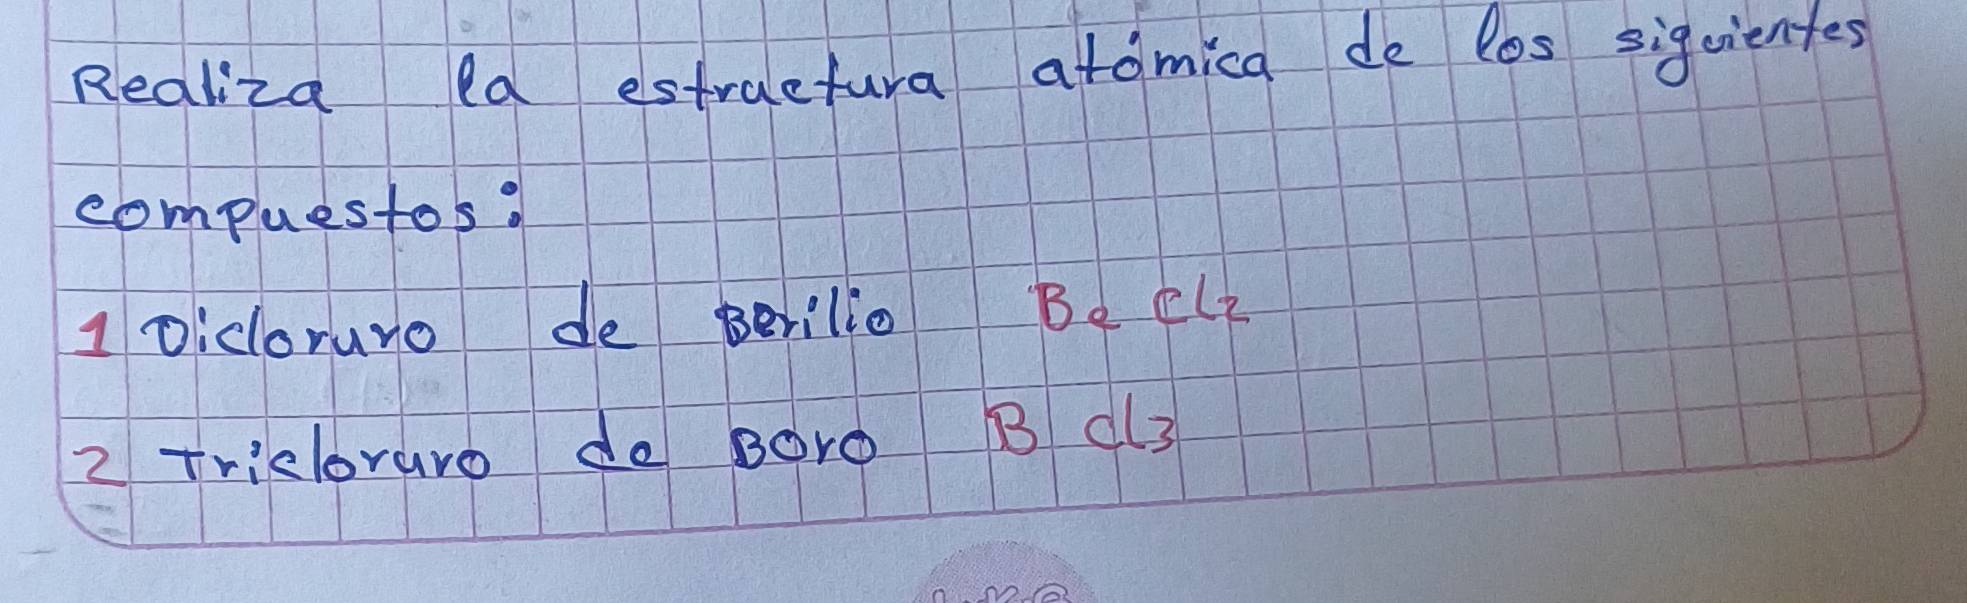 Realiza la estructura atómica de los siguientes
compuestos:
1 Dicloruro de Berilio Be Cl2
2 Tricloruro de Boro B Cl3